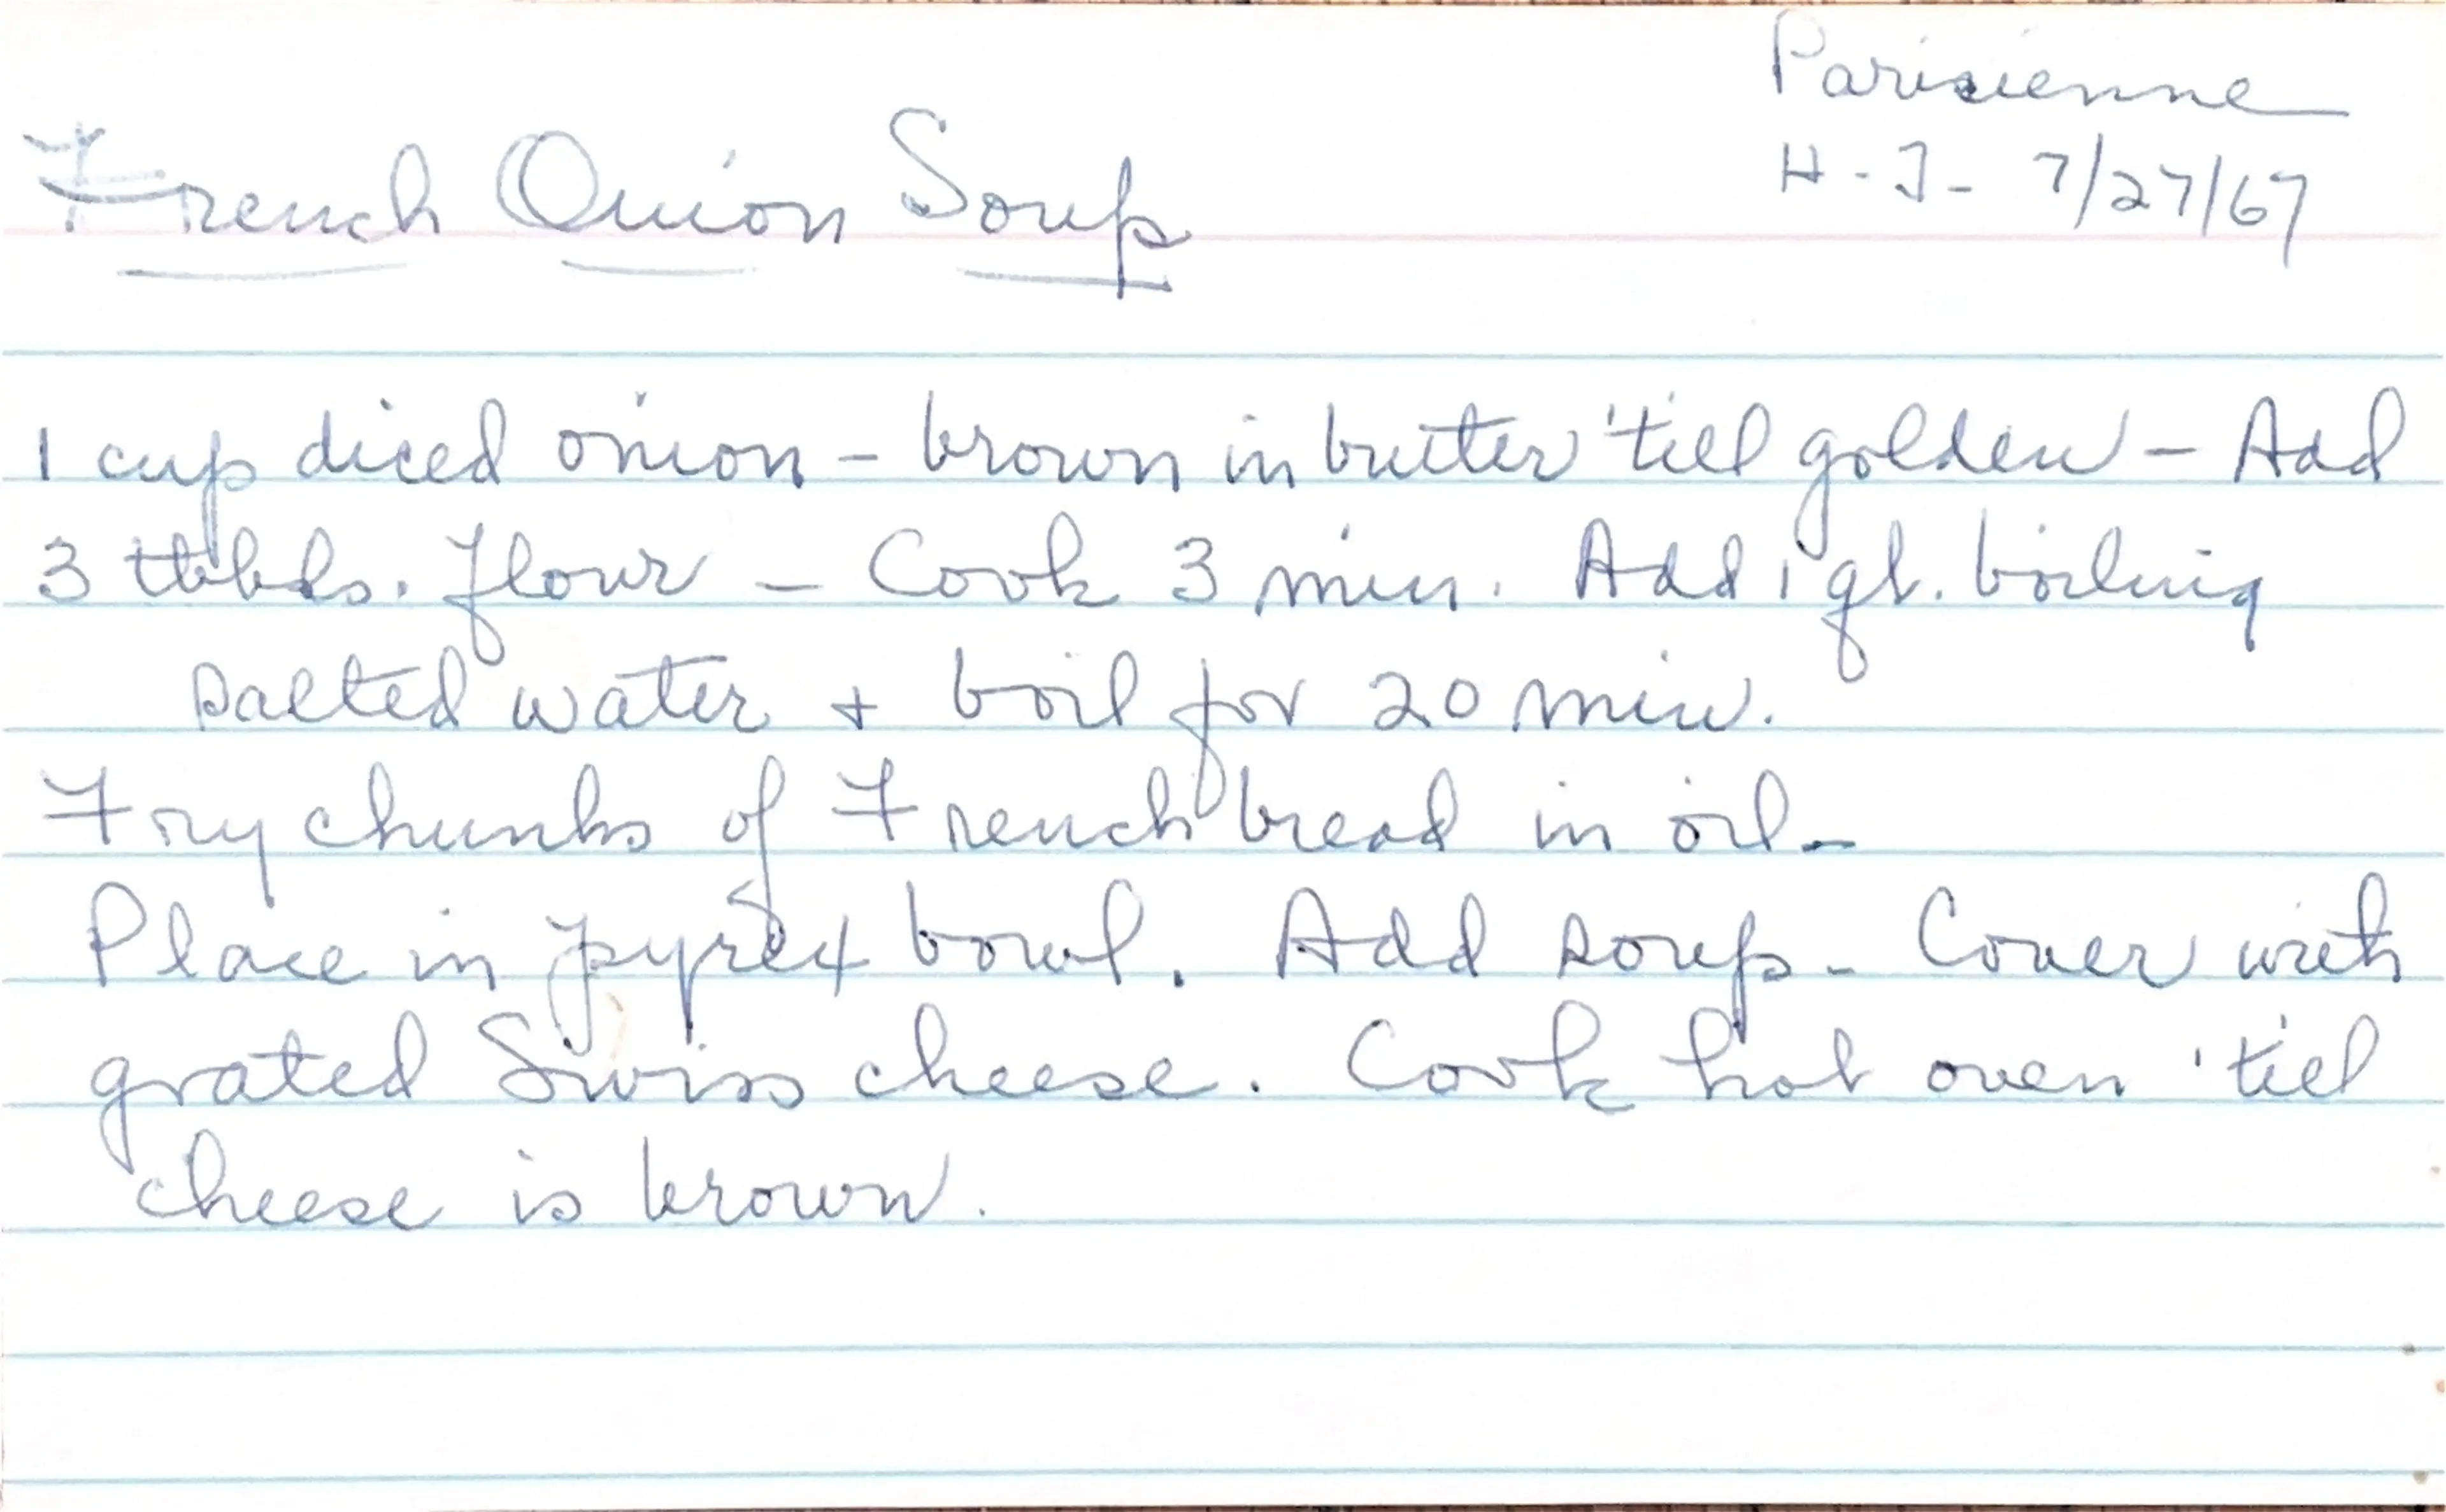 Parisienne
H-J- 7/27/67
French Onion Soup
1 cup diced onion - brown in butter 'till golden - Add
3 tbbls. flour - Cook 3 min. Add 1 qt. boiling
salted water + boil for 20 min.
Fry chunks of French bread in oil-
Place in pyrex bowl. Add soup- Cover with
grated Swiss cheese. Cook hot oven 'till
cheese is brown.